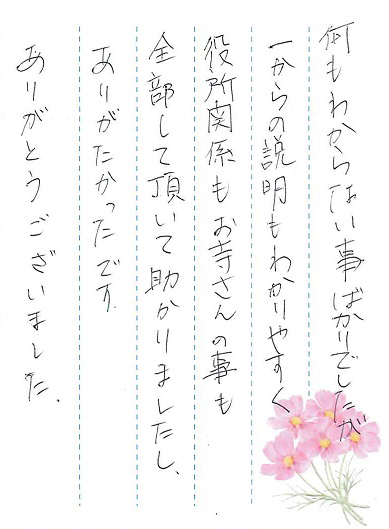 何もわからない事ばかりでしたが
一からの説明もわかりやすく
役所関係もお寺さんの事も
全部して頂いて助かりましたし、
ありがたかったです。
ありがとうございました。